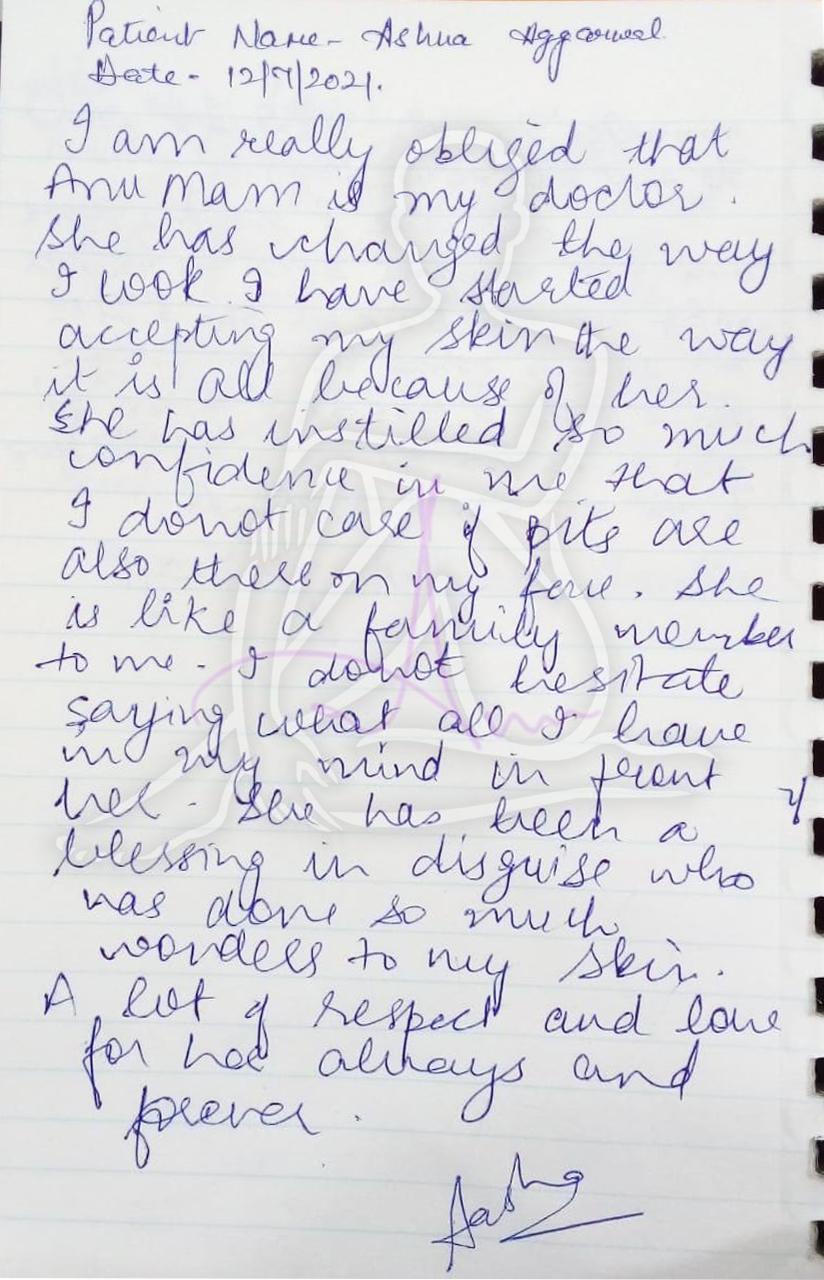 Patient Name - Ashua Aggarwal
Date - 12/7/2021.
I am really obliged that
Anu Mam is my doctor.
She has changed the way
I look. I have started
accepting my skin the way
it is all because of her.
She has instilled so much
confidence in me that
I donot care if pits are
also there on my face. She
is like a family member
to me. I donot hesitate
saying what all I have
in my mind in front of
her. She has been a
blessing in disguise who
has done so much
wonders to my skin.
A lot of respect and love
for her always and
forever.